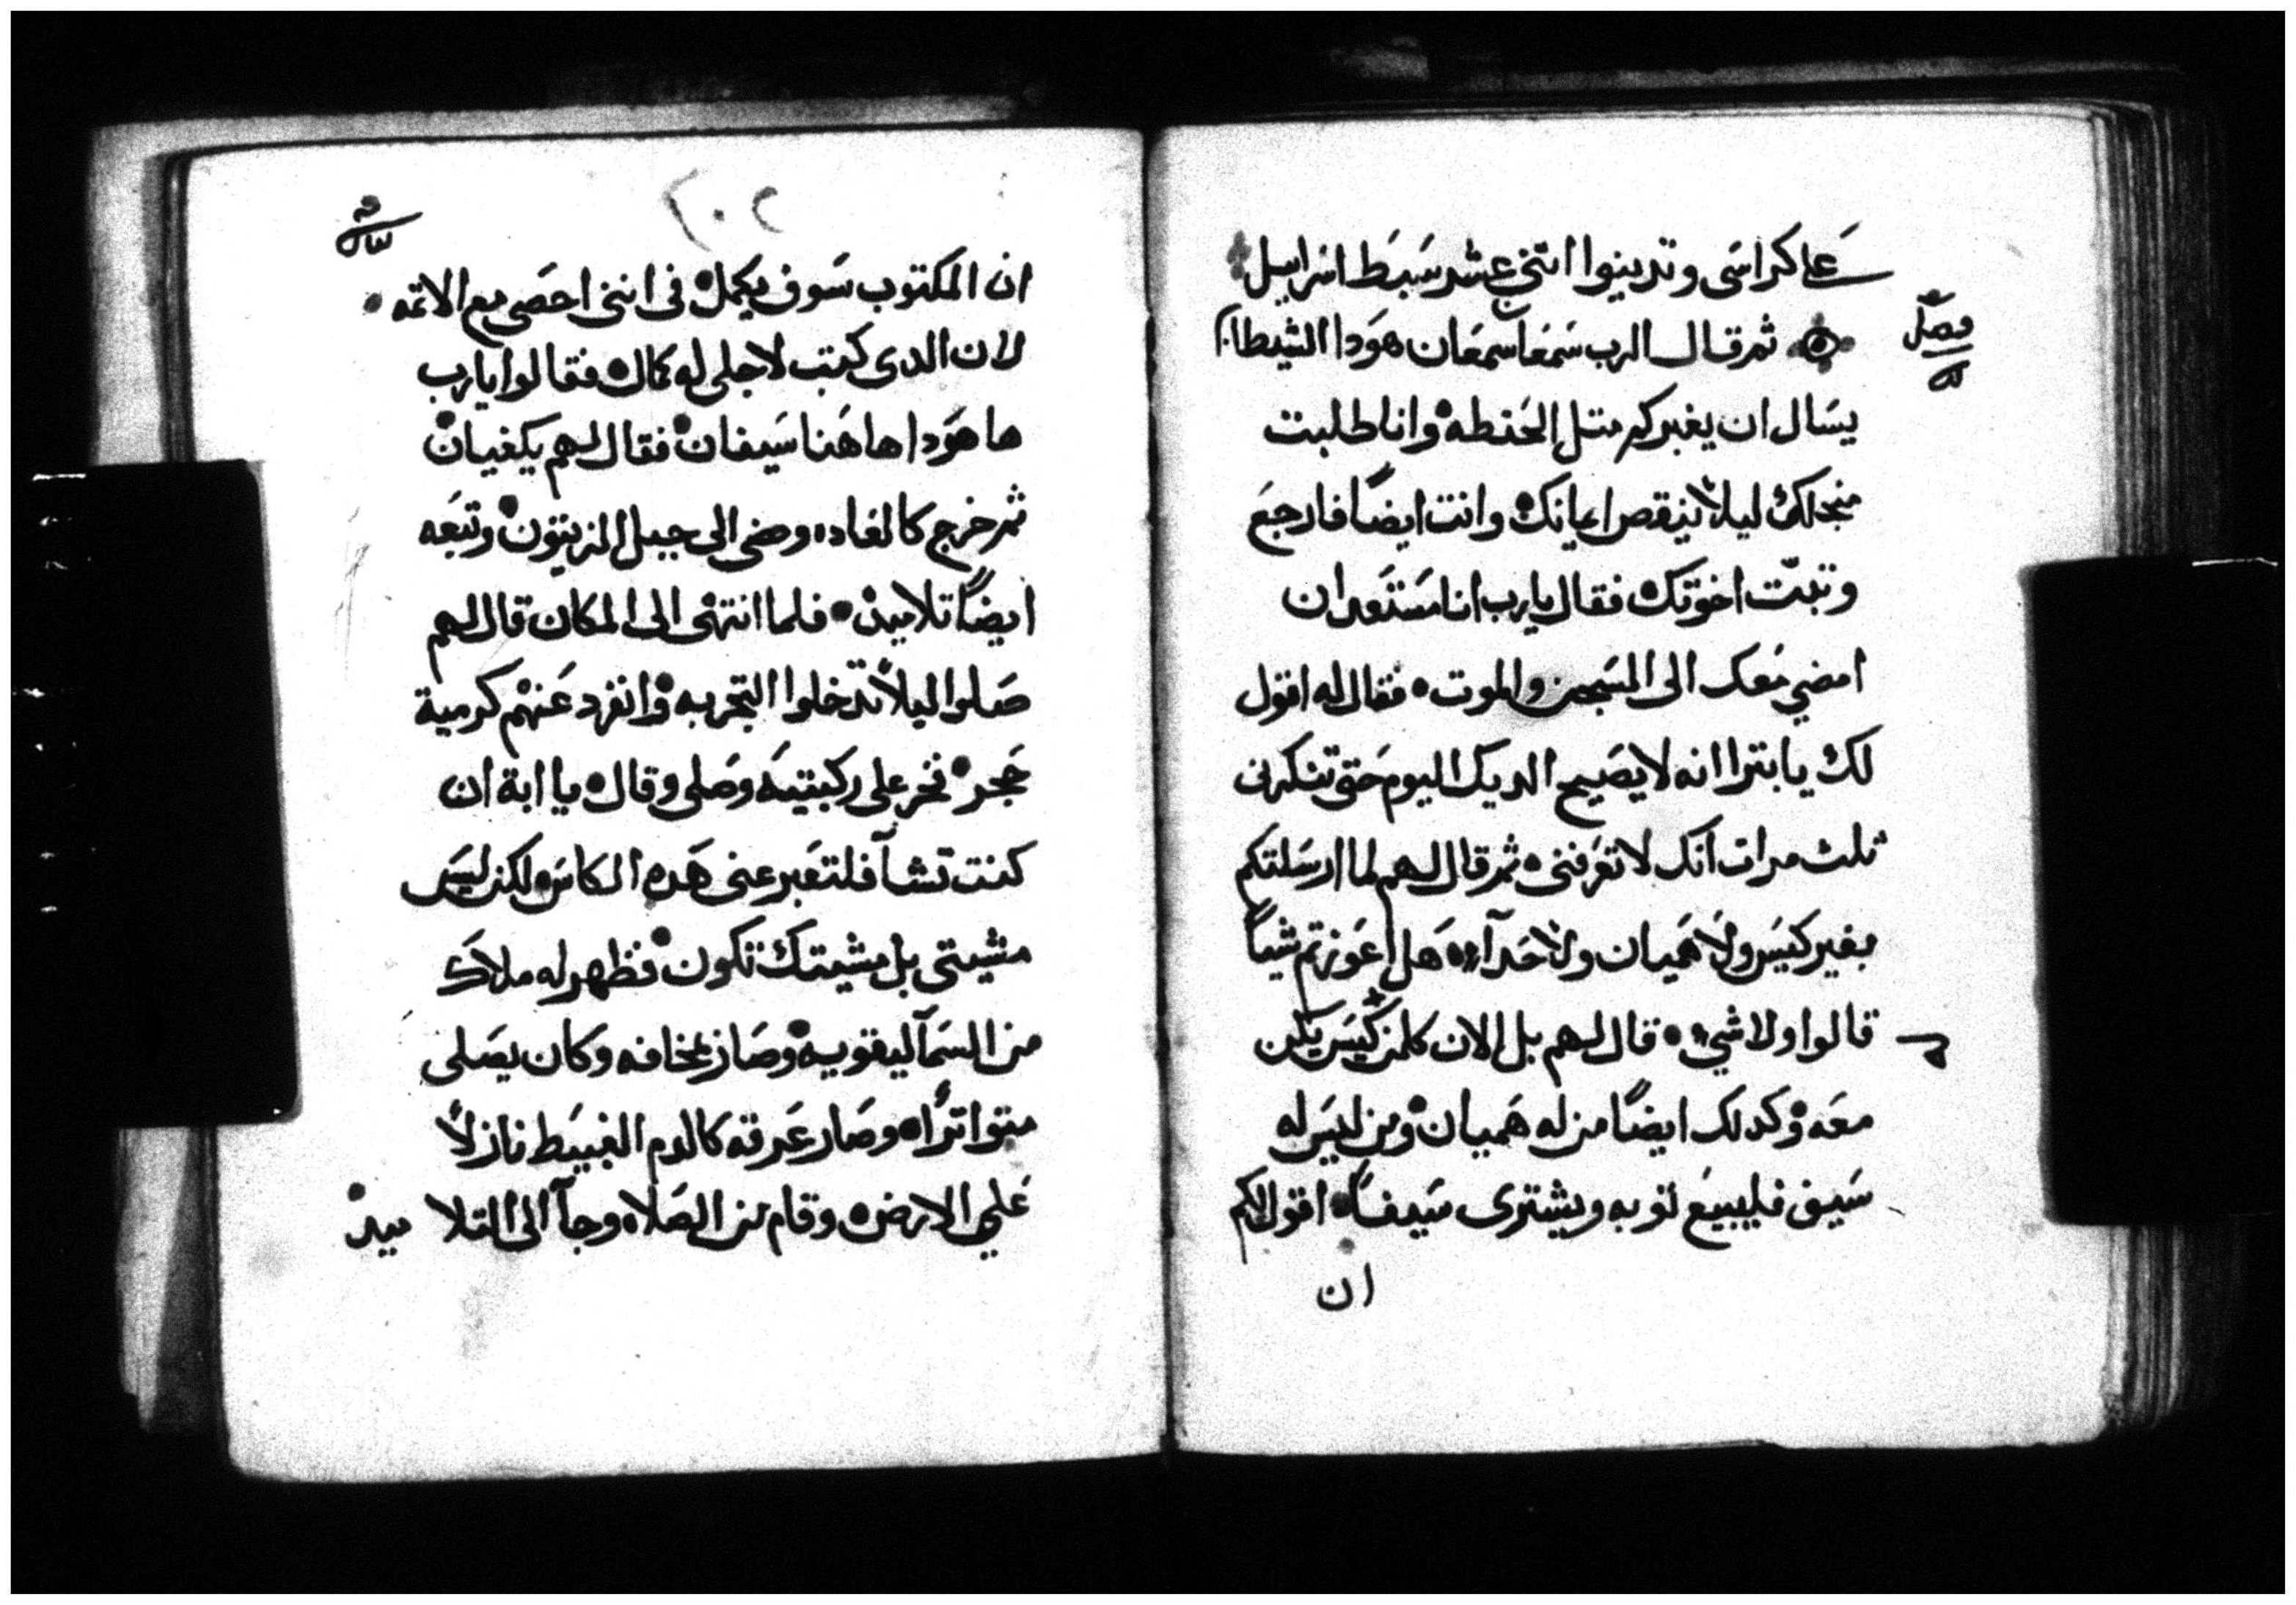 علي كراسى وتدينوا اتنى عشر سبط اسراييل
فصل
ثم قال الرب سمعا سمعان هودا الشيطان
يسال ان يغبركم متل الحنطه وانا طلبت
منجلك ليلا ينقص ايمانك وانت ايضًا فارجع
وتبّت اخوتك فقال يارب انا مستعد ان
امضي معك الى السجن والموت فقال له اقول
لك يا بترا انه لا يصيح الديك اليوم حتى تنكرنى
ثلث مرات انك لا تعرفنى ثم قال لهم لما ارسلتكم
بغير كيس ولا هميان ولا حدآء هل اعوزتم شياً
قالوا ولا شيء قال لهم بل الان كلمن له كيس يكن
معه وكدلك ايضًا من له هميان ومن ليس له
سيف فليبيع توبه ويشترى سيفًا اقول لكم
ان
٢٠٢
ان المكتوب سوف يكمل فى اننى احصى مع الاتمه
لان الدى كتب لاجلى له كمال فقالوا يارب
ها هودا هاهنا سيفان فقال لهم يكفيان
ثم خرج كالعاده ومضى الى جبل الزيتون وتبعه
ايضًا تلاميده فلما انتهى الى المكان قال لهم
صلوا ليلا تدخلوا التجربه وانفرد عنهم كرمية
حجر فخر على ركبتيه وصلى وقال يا ابة ان
كنت تشآ فلتعبر عنى هده الكاس لكن ليس
مشيتى بل مشيتك تكون فظهر له ملاك
من السمآ ليقويه وصار بمخافه وكان يصلى
متواتراً وصار عرقه كالدم الغبيط نازلاً
علي الارض وقام من الصلاه وجآ الى التلاميد